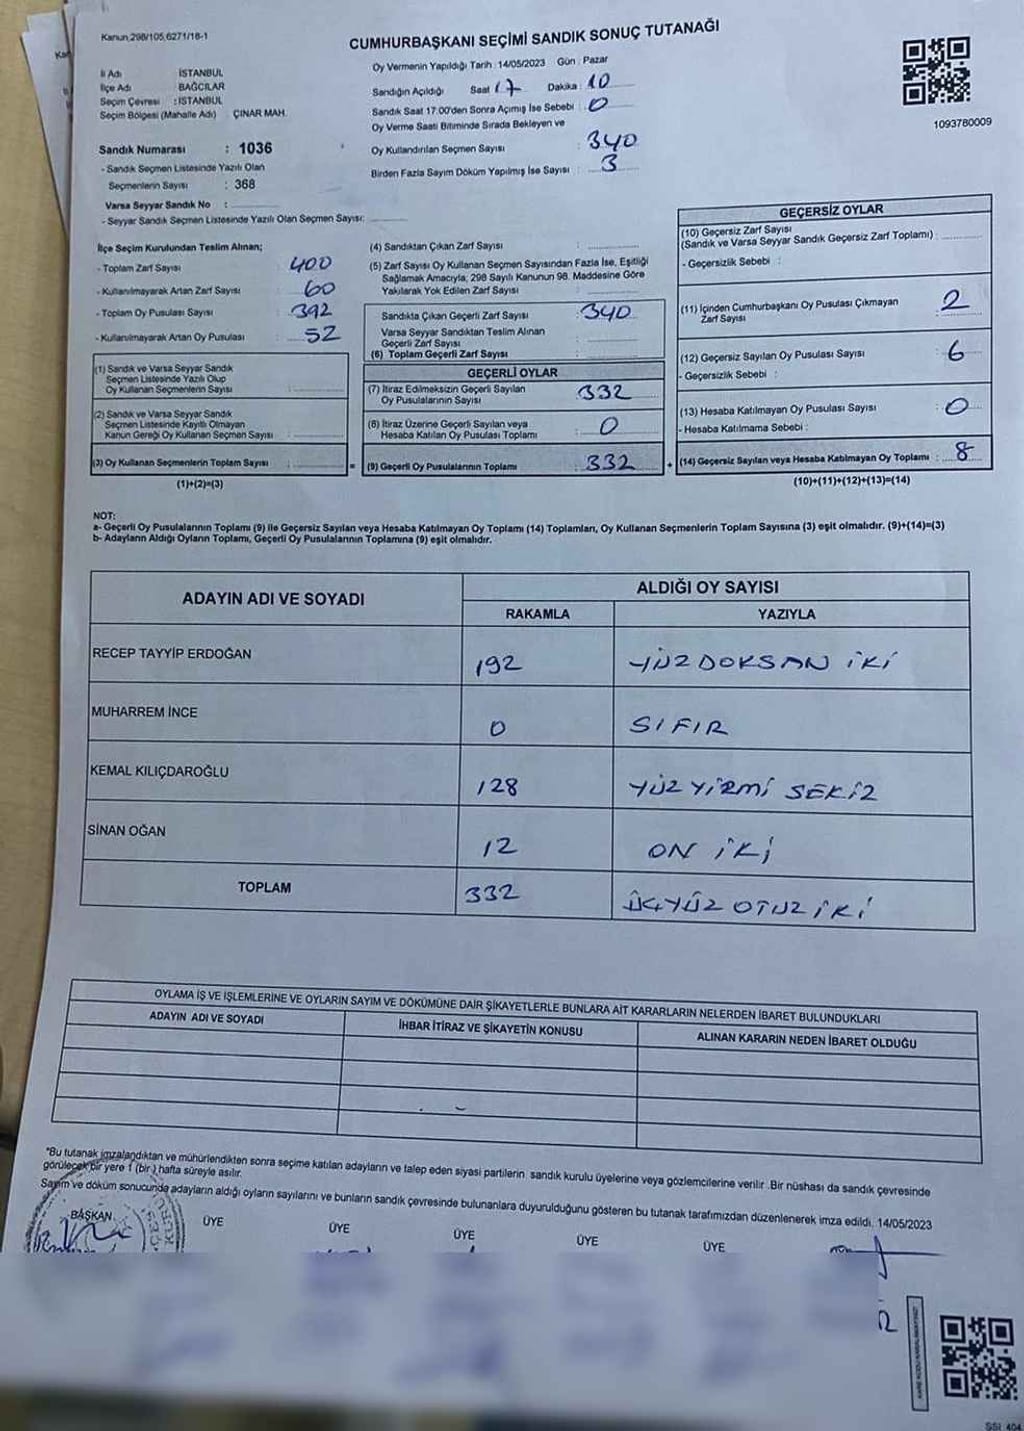 Kanun,298/105,6271/16-1
CUMHURBAŞKANI SEÇİMİ SANDIK SONUÇ TUTANAĞI
İl Adı İSTANBUL
İlçe Adı : BAĞCILAR
Seçim Çevresi : İSTANBUL
Seçim Bölgesi (Mahalle Adı) ÇINAR MAH.
Sandık Numarası : 1036
- Sandık Seçmen Listesinde Yazılı Olan
Seçmenlerin Sayısı : 368
Varsa Seyyar Sandık No :
- Seyyar Sandık Seçmen Listesinde Yazılı Olan Seçmen Sayısı:
Oy Vermenin Yapıldığı Tarih : 14/05/2023 Gün : Pazar
Sandığın Açıldığı Saat 17 Dakika : 10
Sandık Saat 17.00'den Sonra Açımış İse Sebebi : 0
Oy Verme Saati Bitiminde Sırada Bekleyen ve
Oy Kullandırılan Seçmen Sayısı : 340
Birden Fazla Sayım Döküm Yapılmış İse Sayısı : 3
1093780009
İlçe Seçim Kurulundan Teslim Alınan;
- Toplam Zarf Sayısı : 400
- Kullanılmayarak Artan Zarf Sayısı : 60
- Toplam Oy Pusulası Sayısı : 392
- Kullanılmayarak Artan Oy Pusulası : 52
(1) Sandık ve Varsa Seyyar Sandık
Seçmen Listesinde Yazılı Olup
Oy Kullanan Seçmenlerin Sayısı :
(2) Sandık ve Varsa Seyyar Sandık
Seçmen Listesinde Kayıtlı Olmayan
Kanun Gereği Oy Kullanan Seçmen Sayısı :
(3) Oy Kullanan Seçmenlerin Toplam Sayısı : =
(1)+(2)=(3)
(4) Sandıktan Çıkan Zarf Sayısı :
(5) Zarf Sayısı Oy Kullanan Seçmen Sayısından Fazla İse, Eşitliği
Sağlamak Amacıyla; 298 Sayılı Kanunun 98. Maddesine Göre
Yakılarak Yok Edilen Zarf Sayısı :
Sandıkta Çıkan Geçerli Zarf Sayısı : 340
Varsa Seyyar Sandıktan Teslim Alınan
Geçerli Zarf Sayısı :
(6) Toplam Geçerli Zarf Sayısı :
GEÇERLİ OYLAR
(7) İtiraz Edilmeksizin Geçerli Sayılan
Oy Pusulalarının Sayısı : 332
(8) İtiraz Üzerine Geçerli Sayılan veya
Hesaba Katılan Oy Pusulası Toplamı : 0
(9) Geçerli Oy Pusulalarının Toplamı : 332 +
GEÇERSİZ OYLAR
(10) Geçersiz Zarf Sayısı
(Sandık ve Varsa Seyyar Sandık Geçersiz Zarf Toplamı) :
- Geçersizlik Sebebi :
(11) İçinden Cumhurbaşkanı Oy Pusulası Çıkmayan
Zarf Sayısı : 2
(12) Geçersiz Sayılan Oy Pusulası Sayısı : 6
- Geçersizlik Sebebi :
(13) Hesaba Katılmayan Oy Pusulası Sayısı : 0
- Hesaba Katılmama Sebebi :
(14) Geçersiz Sayılan veya Hesaba Katılmayan Oy Toplamı : 8
(10)+(11)+(12)+(13)=(14)
NOT:
a- Geçerli Oy Pusulalarının Toplamı (9) ile Geçersiz Sayılan veya Hesaba Katılmayan Oy Toplamı (14) Toplamları, Oy Kullanan Seçmenlerin Toplam Sayısına (3) eşit olmalıdır. (9)+(14)=(3)
b- Adayların Aldığı Oyların Toplamı, Geçerli Oy Pusulalarının Toplamına (9) eşit olmalıdır.
ADAYIN ADI VE SOYADI
ALDIĞI OY SAYISI
RAKAMLA YAZIYLA
RECEP TAYYİP ERDOĞAN 192 YÜZ DOKSAN İKİ
MUHARREM İNCE 0 SIFIR
KEMAL KILIÇDAROĞLU 128 YÜZ YİRMİ SEKİZ
SİNAN OĞAN 12 ON İKİ
TOPLAM 332 ÜÇYÜZ OTUZ İKİ
OYLAMA İŞ VE İŞLEMLERİNE VE OYLARIN SAYIM VE DÖKÜMÜNE DAİR ŞİKAYETLERLE BUNLARA AİT KARARLARIN NELERDEN İBARET BULUNDUKLARI
ADAYIN ADI VE SOYADI İHBAR İTİRAZ VE ŞİKAYETİN KONUSU ALINAN KARARIN NEDEN İBARET OLDUĞU
*Bu tutanak imzalandıktan ve mühürlendikten sonra seçime katılan adayların ve talep eden siyasi partilerin sandık kurulu üyelerine veya gözlemcilerine verilir. Bir nüshası da sandık çevresinde
görülecek bir yere 1 (bir) hafta süreyle asılır.
Sayım ve döküm sonucunda adayların aldığı oyların sayılarını ve bunların sandık çevresinde bulunanlara duyurulduğunu gösteren bu tutanak tarafımızdan düzenlenerek imza edildi. 14/05/2023
BAŞKAN ÜYE ÜYE ÜYE ÜYE ÜYE